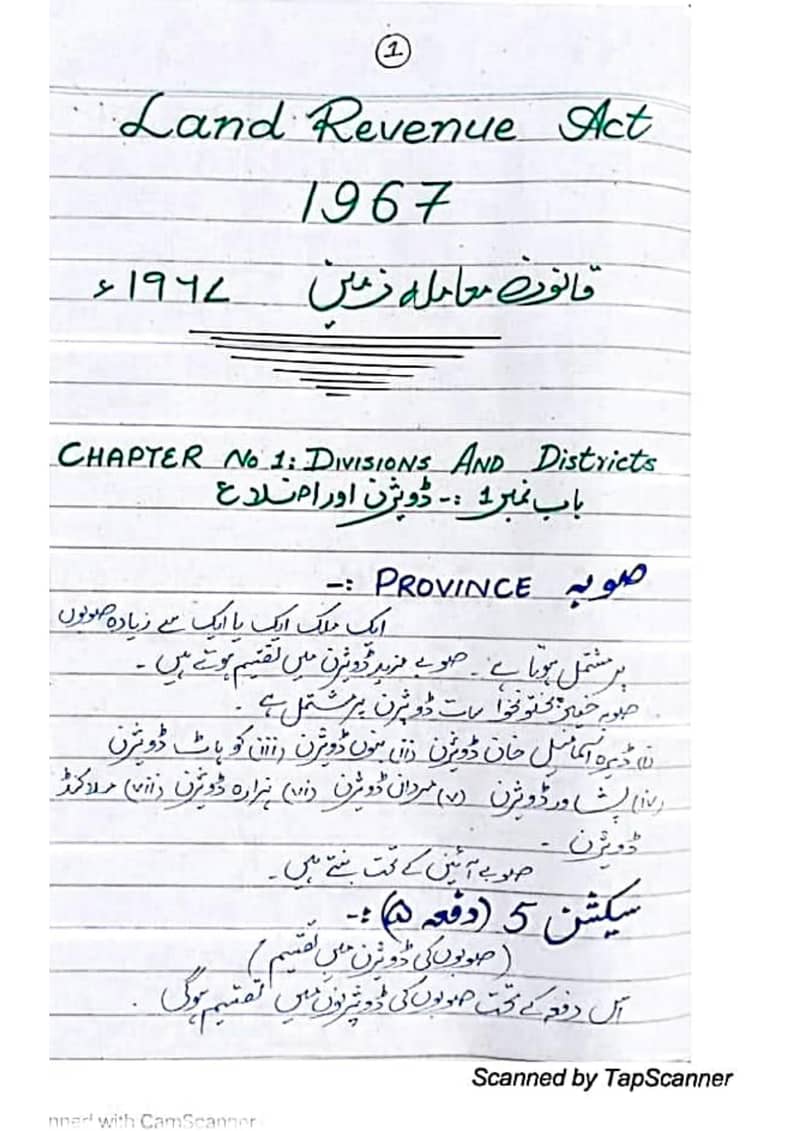 1
Land Revenue Act
1967
قانون معاملہ زمین ۱۹۶۷ء
CHAPTER No 1: DIVISIONS AND Districts
باب نمبر 1 :- ڈویژن اور اضلاع
صوبہ PROVINCE :-
ایک ملک ایک یا ایک سے زیادہ صوبوں
پر مشتمل ہوتا ہے ۔ صوبے مزید ڈویژن میں تقسیم ہوتے ہیں ۔
صوبہ خیبر پختونخوا سات ڈویژن پر مشتمل ہے ۔
(i) ڈیرہ اسماعیل خان ڈویژن (ii) بنوں ڈویژن (iii) کوہاٹ ڈویژن
(iv) پشاور ڈویژن (v) مردان ڈویژن (vi) ہزارہ ڈویژن (vii) ملاکنڈ
ڈویژن ۔
صوبے آئین کے تحت بنتے ہیں ۔
سیکشن 5 (دفعہ ۵) :-
(صوبوں کی ڈویژن میں تقسیم)
اس دفعہ کے تحت صوبوں کی ڈویژنوں میں تقسیم ہوگی ۔
Scanned by TapScanner
nned with CamScanner